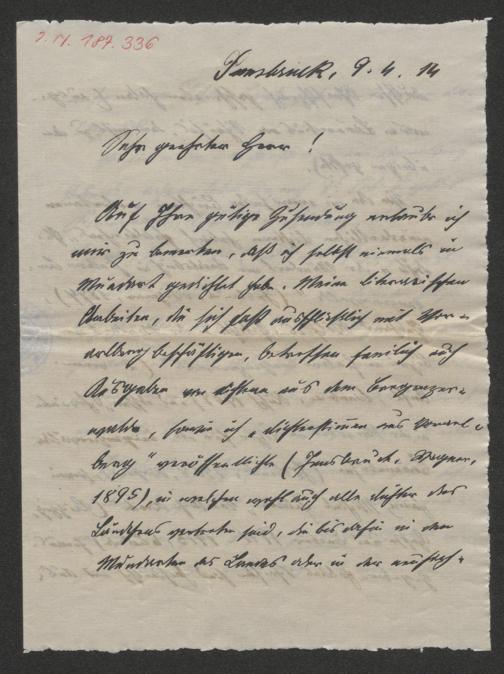 I. N. 187.336
Innsbruck, 9. 4. 14
Sehr geehrter Herr!
Auf Ihre gütige Zusendung erlaube ich
mir zu bemerken, daß ich selbst niemals in
Mundart gedichtet habe. Meine literarischen
Arbeiten, die sich fast ausschließlich mit Vor=
arlberg beschäftigen, betreffen freilich auch
Ausgaben von Dichtern aus dem Bregenzer=
walde, sowie ich „Dichterstimmen aus Vorarl=
berg" veröffentlichte (Innsbruck, Wagner,
1895), in welchen wohl auch alle Dichter des
Ländchens vertreten sind, die bis dahin in den
Mundarten des Landes oder in der neuhoch=